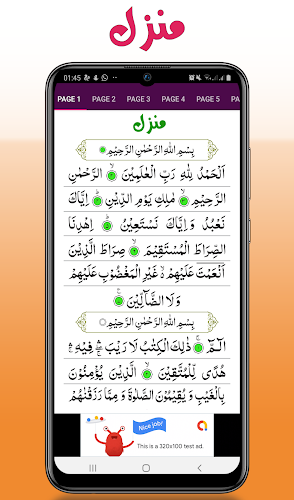 منزل
01:45
PAGE 1 PAGE 2 PAGE 3 PAGE 4 PAGE 5 PA
منزل
بِسْمِ اللّٰهِ الرَّحْمٰنِ الرَّحِيْمِ
اَلْحَمْدُ لِلّٰهِ رَبِّ الْعٰلَمِيْنَ ۝ الرَّحْمٰنِ
الرَّحِيْمِ ۝ مٰلِكِ يَوْمِ الدِّيْنِ ۝ اِيَّاكَ
نَعْبُدُ وَاِيَّاكَ نَسْتَعِيْنُ ۝ اِهْدِنَا
الصِّرَاطَ الْمُسْتَقِيْمَ ۝ صِرَاطَ الَّذِيْنَ
اَنْعَمْتَ عَلَيْهِمْ ۙ غَيْرِ الْمَغْضُوْبِ عَلَيْهِمْ
وَلَا الضَّآلِّيْنَ ۝
بِسْمِ اللّٰهِ الرَّحْمٰنِ الرَّحِيْمِ
الٓمّٓ ۝ ذٰلِكَ الْكِتٰبُ لَا رَيْبَ ۛ فِيْهِ ۛ
هُدًى لِّلْمُتَّقِيْنَ ۝ الَّذِيْنَ يُؤْمِنُوْنَ
بِالْغَيْبِ وَيُقِيْمُوْنَ الصَّلٰوةَ وَمِمَّا رَزَقْنٰهُمْ
Nice job!
This is a 320x100 test ad.